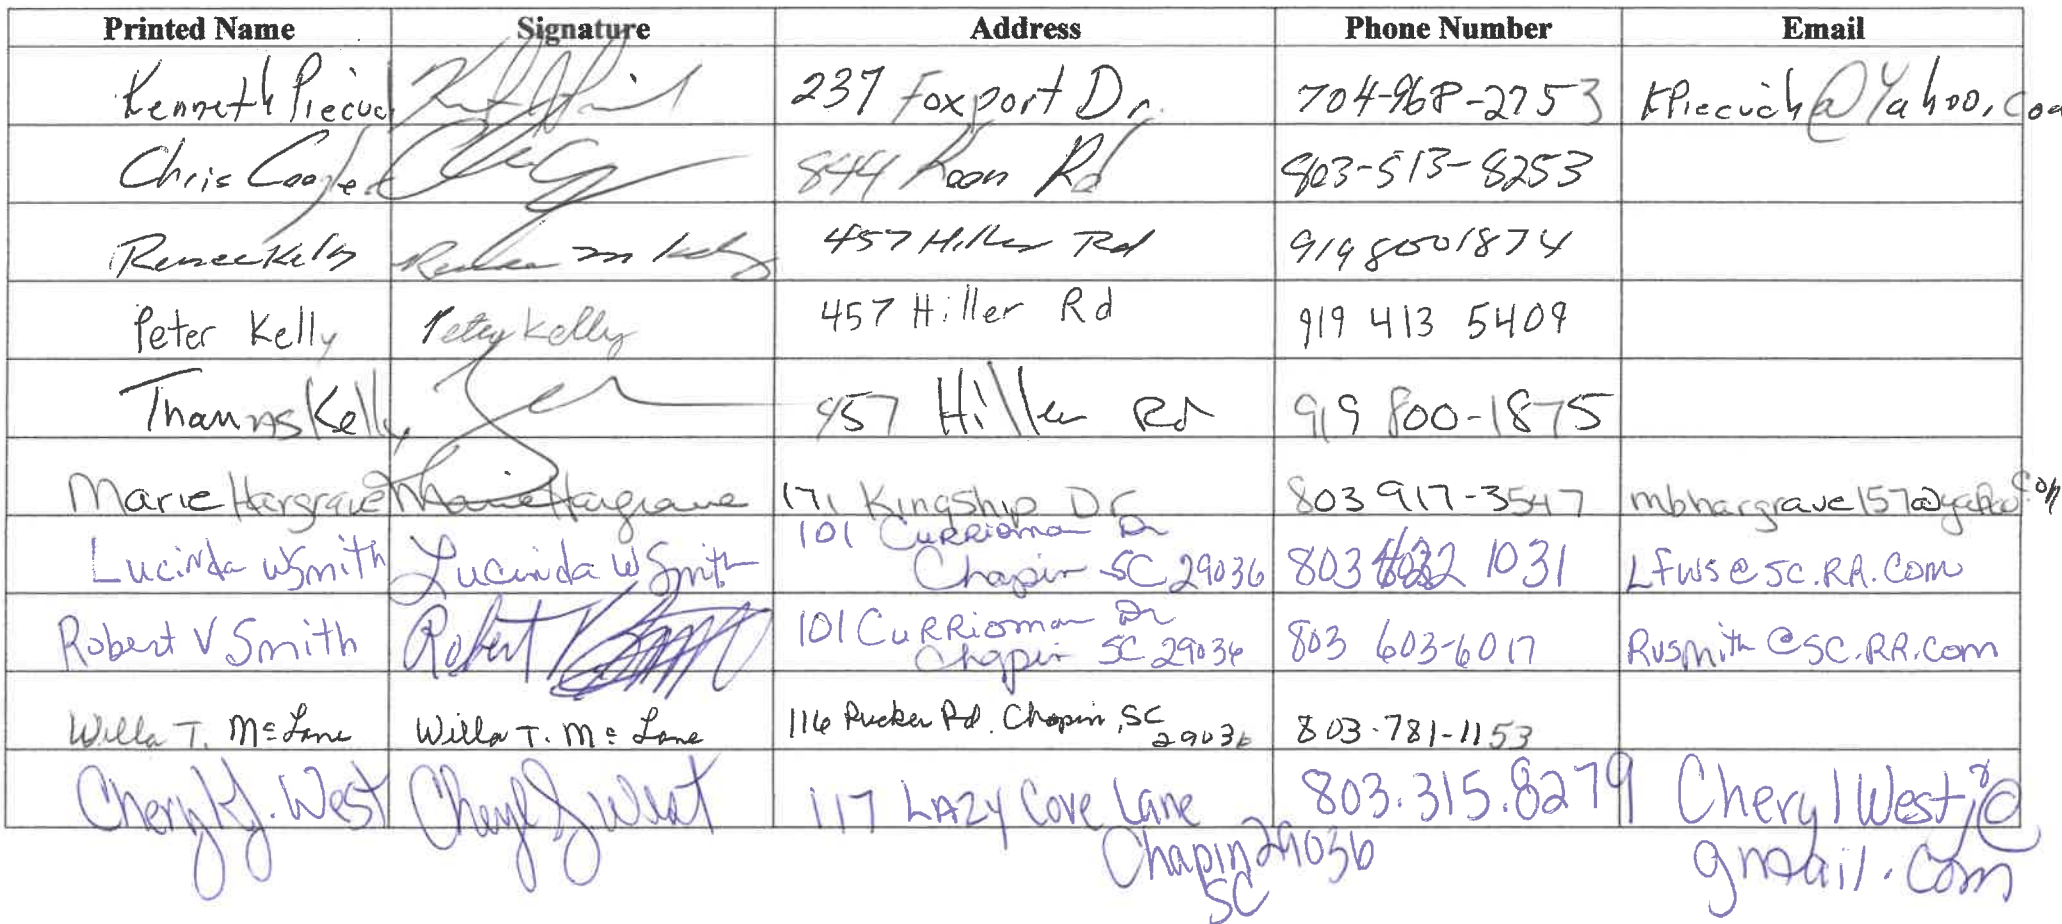 Printed Name Signature Address Phone Number Email
Kenneth Piecuc 237 Foxport Dr. 704-968-2753 KPiecuch@Yahoo.com
Chris Cooper 844 Koon Rd 803-513-8253
Renee Kelly Renee m Kelly 457 Hiller Rd 919 800 1874
Peter Kelly Peter Kelly 457 Hiller Rd 919 413 5409
Thomas Kelly 457 Hiller Rd 919 800-1875
Marie Hargrave Marie Hargrave 171 Kingship Dr 803 917-3547 mbhargrave157@yahoo.com
Lucinda W Smith Lucinda W Smith 101 Currioman Dr
Chapin SC 29036 803 1031 LFWS@SC.RR.Com
Robert V Smith Robert V Smith 101 CuRRioman Dr
Chapin SC 29036 803 603-6017 RVSmith@SC.RR.Com
Willa T. McLane Willa T. McLane 116 Rucker Rd. Chapin, SC
29036 803-781-1153
Cheryl J. West Cheryl J West 117 LAZY Cove Lane 803.315.8279 CherylWestjr@
Chapin 29036 gmail.com
SC